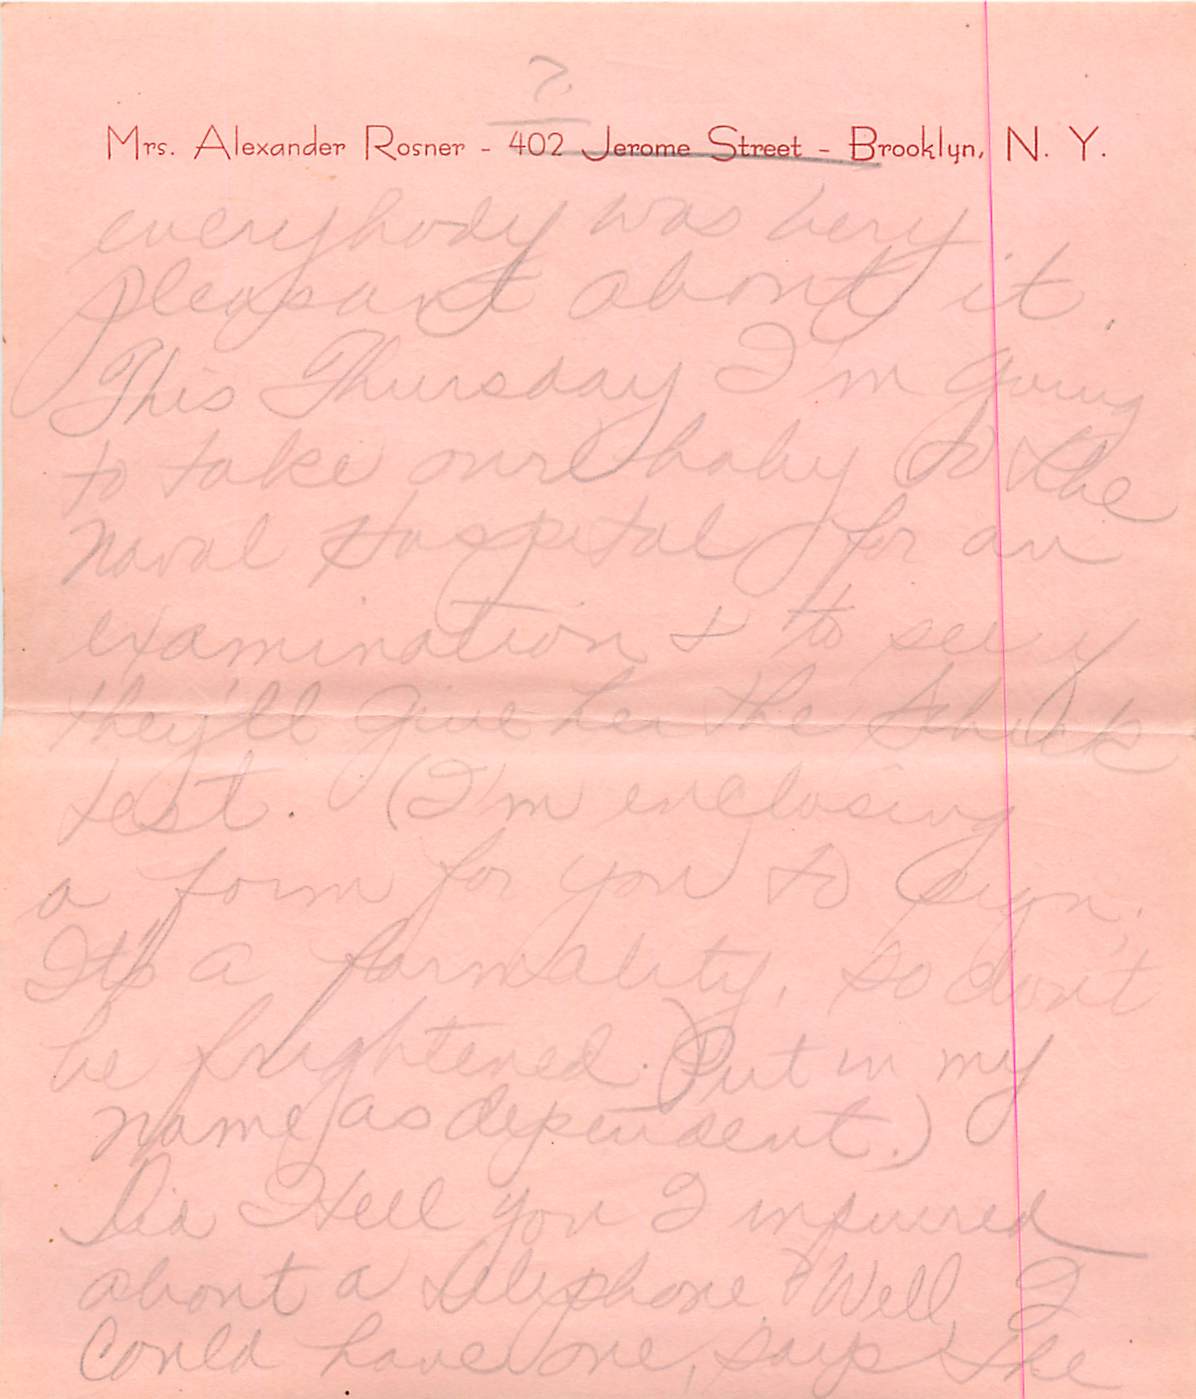 7.
Mrs. Alexander Rosner - 402 Jerome Street - Brooklyn, N. Y.
everybody was very
pleasant about it.
This Thursday I'm going
to take our baby to the
Naval Hospital for an
examination & to see if
they'll give her the Schick
test. (I'm enclosing
a form for you to sign.
It's a formality, so don't
be frightened.) Put in my
name as dependent.)
Did I tell you I inquired
about a telephone? Well, I
could have one, says the